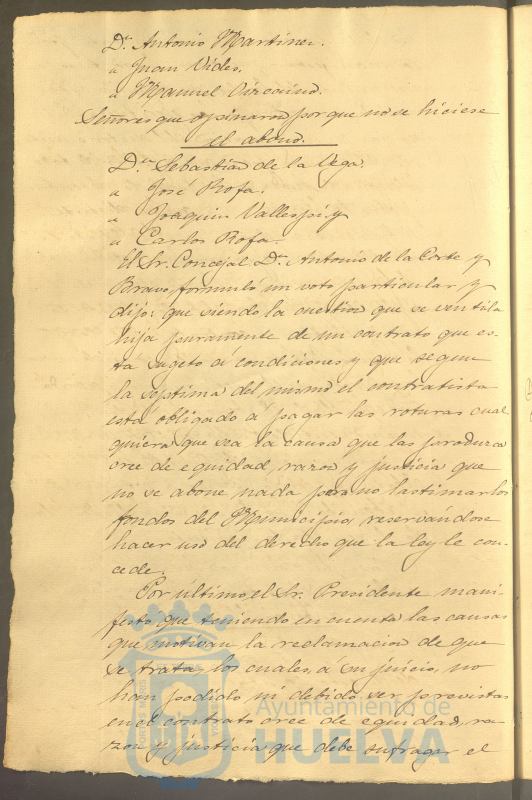 Dn. Antonio Martinez.
" Juan Vides.
" Manuel Vizcaino.
Señores que opinaron por que no se hiciese
el abono.
Dn. Sebastian de la Vega.
" José Rofa.
" Joaquin Vallespí, y
" Carlos Rofa.
El Sr. Concejal Dn. Antonio de la Corte y
Bravo formuló un voto particular y
dijo: que siendo la cuestion que se ventila
hija puramente de un contrato que es-
tá sugeto á condiciones y que segun
la séptima del mismo el contratista
está obligado á pagar las roturas cual
quiera que sea la causa que las produzca
cree de equidad razon y justicia que
no se abone nada para no lastimar los
fondos del Municipio, reservandose
hacer uso del derecho que la ley le con-
cede.
Por último, el Sr. Presidente mani-
festó que teniendo en cuenta las causas
que motivan la reclamacion de que
se trata los cuales, á su juicio, no
han podido ni debido ser previstas
en el contrato cree de equidad, ra-
zon y justicia que debe sufragar el
Ayuntamiento de
HUELVA